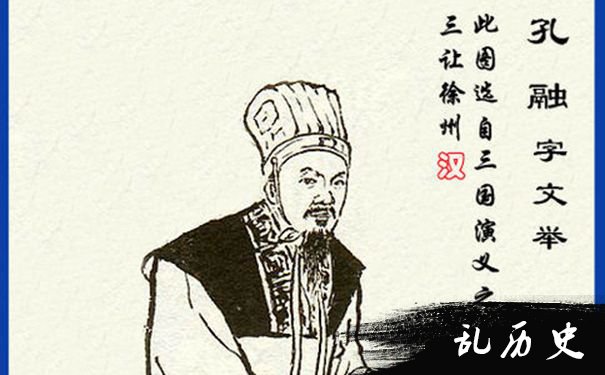 孔融字文举
此图选自三国演义之
三让徐州
汉
乱历史